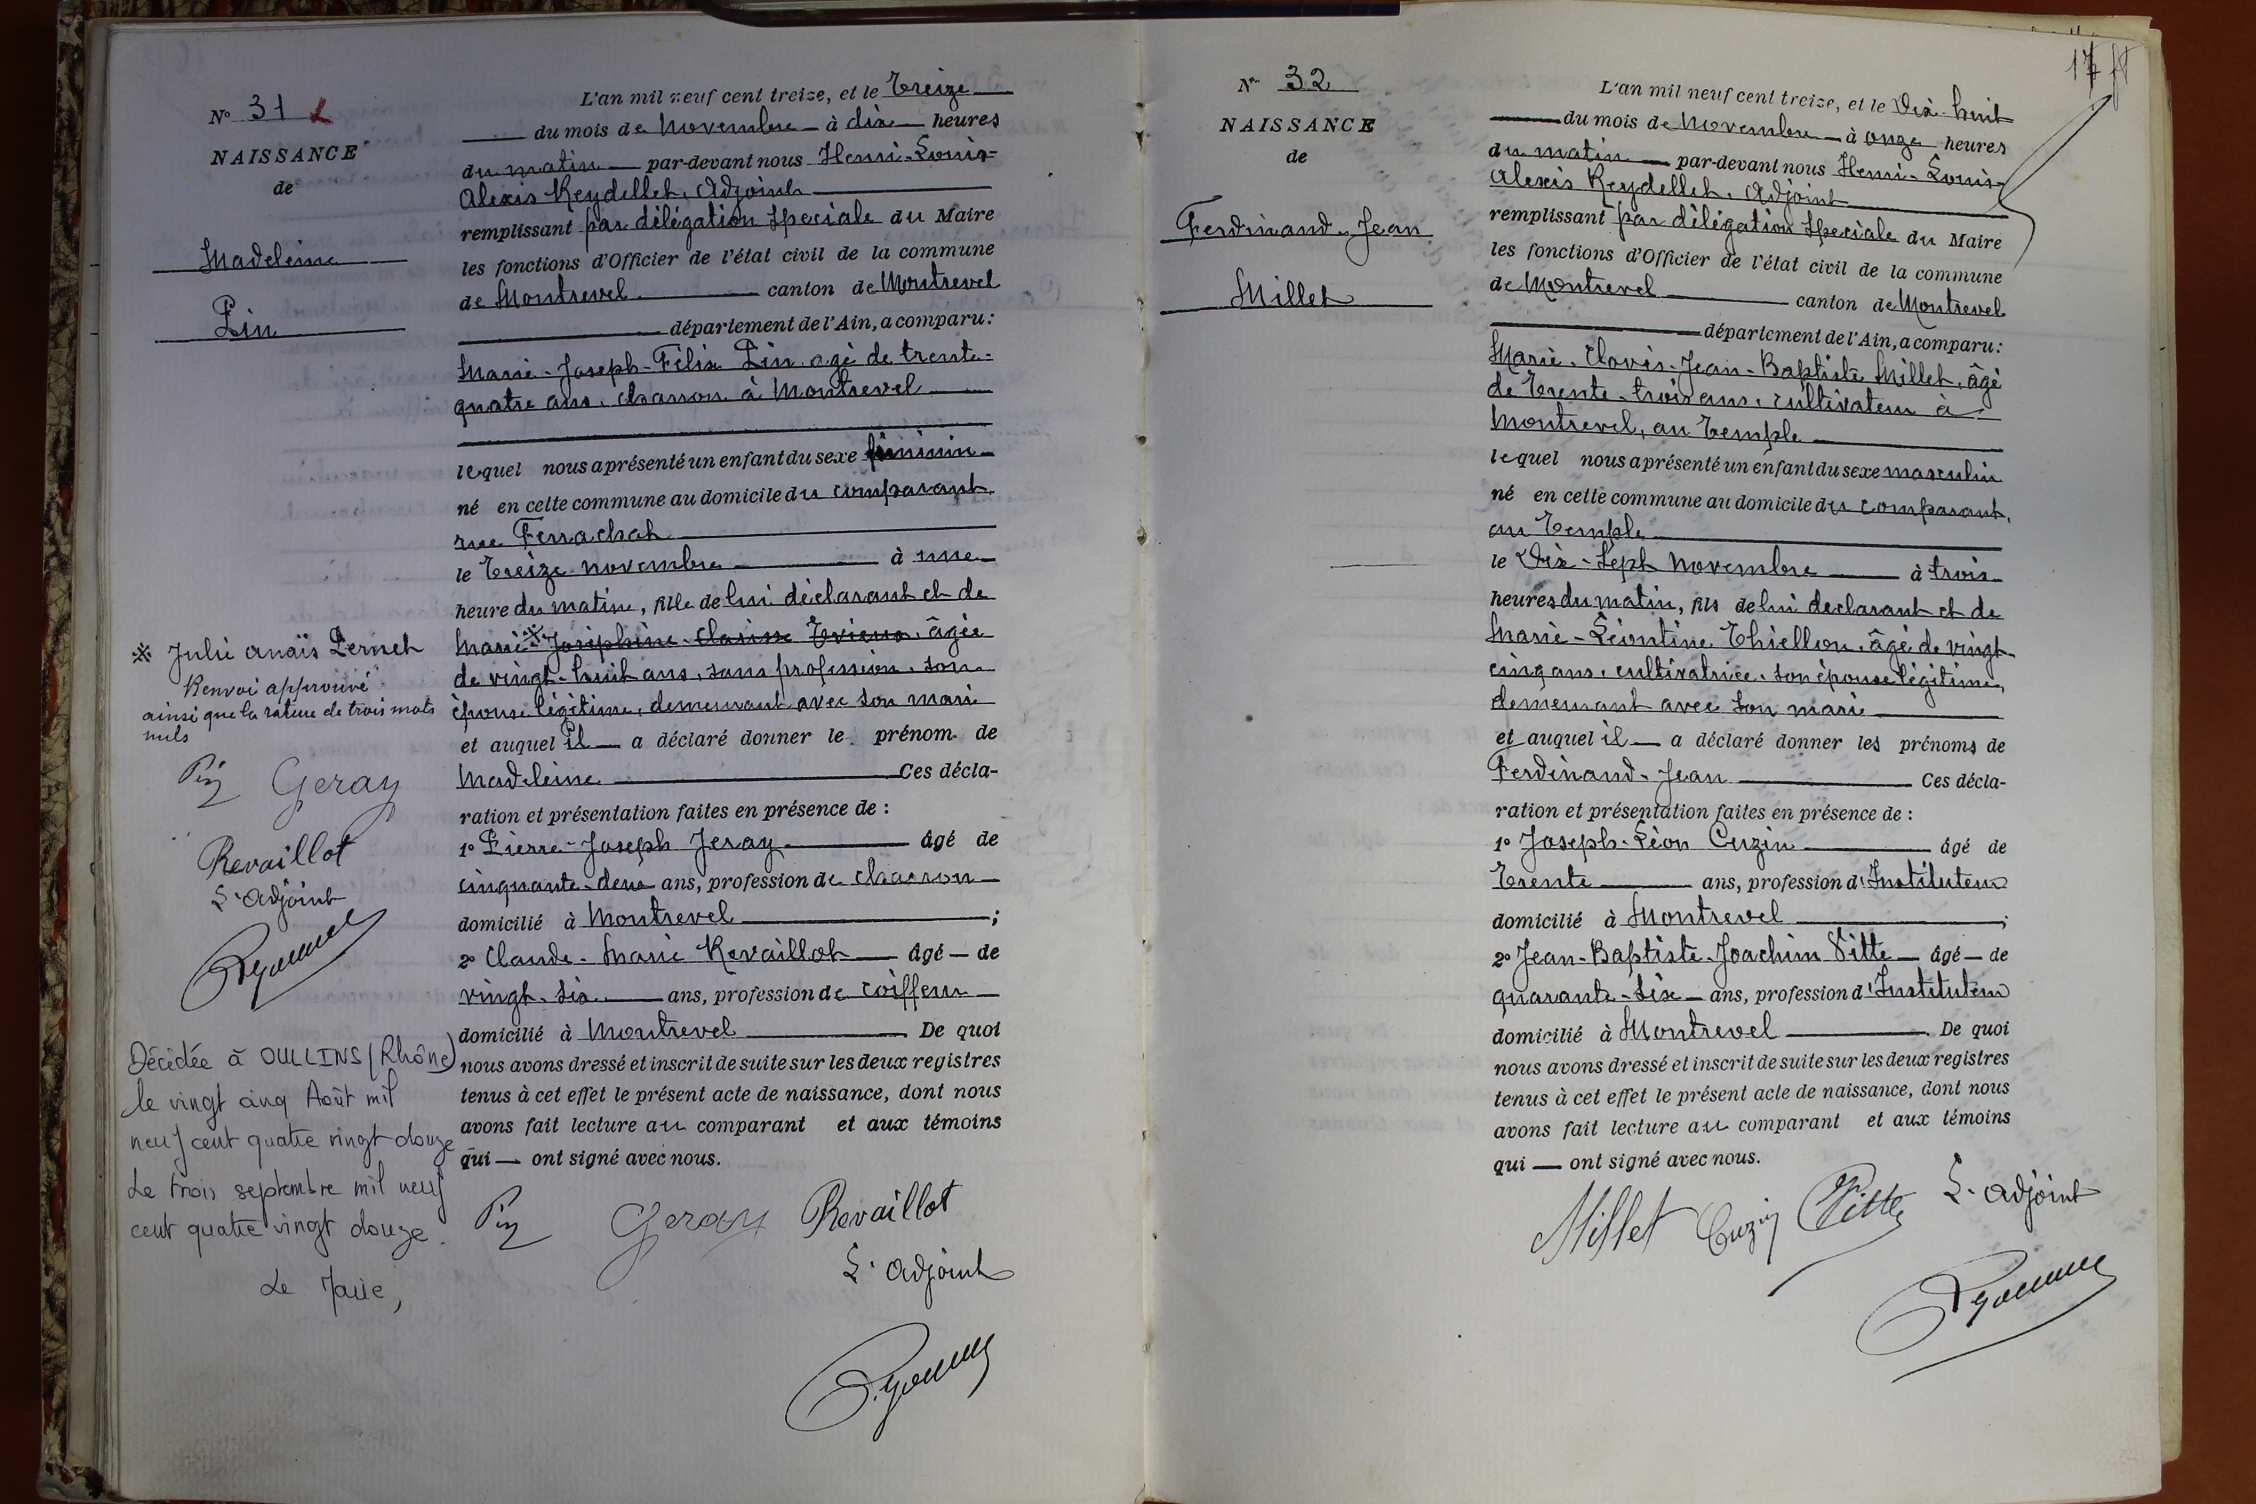 N° 31
NAISSANCE
de
Madeleine
Pin
L'an mil neuf cent treize, et le Treize
du mois de Novembre à dix heures
du matin par-devant nous Henri-Louis-
Alexis Reydellet, Adjoint
remplissant par délégation Spéciale du Maire
les fonctions d'Officier de l'état civil de la commune
de Montrevel canton de Montrevel
département de l'Ain, a comparu :
Marie-Joseph-Félix Pin, agé de trente-
quatre ans, charron à Montrevel
lequel nous a présenté un enfant du sexe féminin
né en cette commune au domicile du comparant,
rue Ferrachat
le Treize novembre à une
heure du matin, fille de lui déclarant et de
Marie ※ Joséphine-Clarisse âgée
de vingt-huit ans, sans profession, son
épouse légitime, demeurant avec son mari
et auquel il a déclaré donner le prénom de
Madeleine Ces décla-
ration et présentation faites en présence de :
1° Pierre-Joseph Jeray âgé de
cinquante-deux ans, profession de charron
domicilié à Montrevel ;
2° Claude-Marie Revaillot âgé de
vingt-six ans, profession de coiffeur
domicilié à Montrevel De quoi
nous avons dressé et inscrit de suite sur les deux registres
tenus à cet effet le présent acte de naissance, dont nous
avons fait lecture au comparant et aux témoins
qui ont signé avec nous.
Pin Geray Revaillot
L'adjoint
※ Julie Anaïs Pernet
Renvoi approuvé
ainsi que la rature de trois mots
nuls
Pin Geray
Revaillot
L'adjoint
Décédée à OULLINS (Rhône)
le vingt cinq Août mil
neuf cent quatre vingt douze
Le trois septembre mil neuf
cent quatre vingt douze.
Le Maire,
17
N° 32
NAISSANCE
de
Ferdinand-Jean
Millet
L'an mil neuf cent treize, et le Dix-huit
du mois de Novembre à onze heures
du matin par-devant nous Henri-Louis-
Alexis Reydellet, Adjoint
remplissant par délégation Spéciale du Maire
les fonctions d'Officier de l'état civil de la commune
de Montrevel canton de Montrevel
département de l'Ain, a comparu :
Marie-Clovis-Jean-Baptiste Millet, âgé
de Trente-trois ans, cultivateur à
Montrevel, au Temple
lequel nous a présenté un enfant du sexe masculin
né en cette commune au domicile du comparant,
au Temple
le Dix-Sept Novembre à trois
heures du matin, fils de lui déclarant et de
Marie-Léontine Thiellon, âgé de vingt-
cinq ans, cultivatrice, son épouse légitime,
demeurant avec son mari
et auquel il a déclaré donner les prénoms de
Ferdinand-Jean Ces décla-
ration et présentation faites en présence de :
1° Joseph-Léon Cuzin âgé de
Trente ans, profession d'Instituteur
domicilié à Montrevel ;
2° Jean-Baptiste-Joachim Vitte âgé de
quarante-six ans, profession d'Instituteur
domicilié à Montrevel. De quoi
nous avons dressé et inscrit de suite sur les deux registres
tenus à cet effet le présent acte de naissance, dont nous
avons fait lecture au comparant et aux témoins
qui ont signé avec nous.
Millet Cuzin Vitte L'adjoint